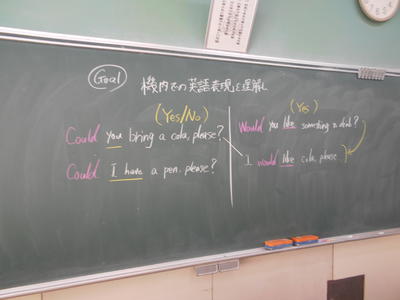 Goal
機内での英語表現を理解し
(Yes/No)
Could you bring a cola, please?
Could I have a pen, please?
(Yes)
Would you like something to drink?
I would like cola, please.